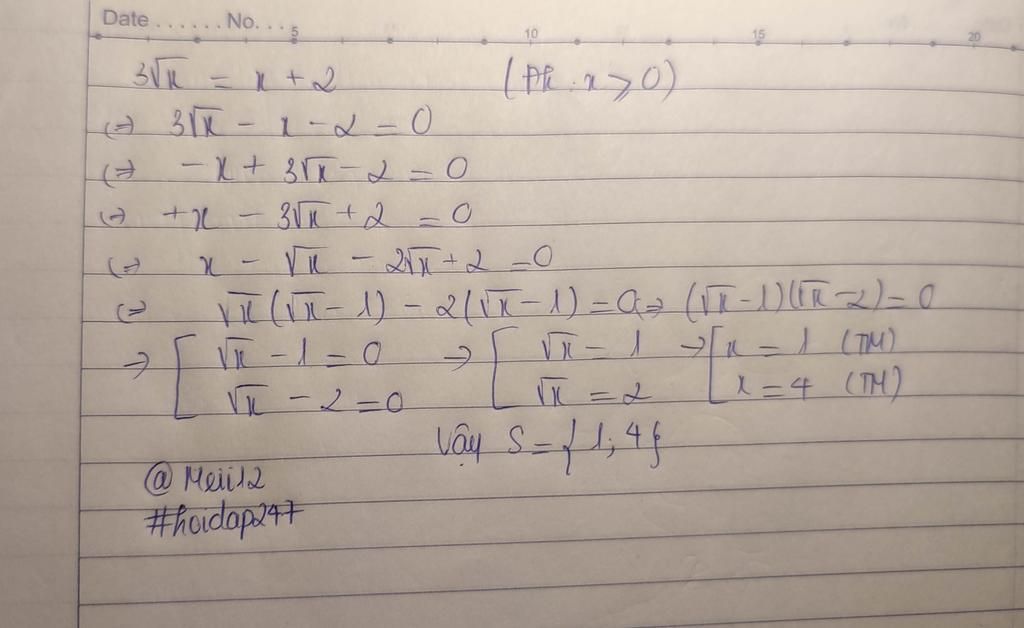 Date ...... No. ...
5 10 15 20
3√x = x + 2 (Đk: x ⩾ 0)
(=) 3√x - x - 2 = 0
(=) - x + 3√x - 2 = 0
(=) + x - 3√x + 2 = 0
(=) x - √x - 2√x + 2 = 0
(=) √x(√x - 1) - 2(√x - 1) = 0 (=) (√x - 1)(√x - 2) = 0
=> [ √x - 1 = 0 => [ √x = 1 => [ x = 1 (TM)
√x - 2 = 0 √x = 2 x = 4 (TM)
Vậy S = { 1; 4 }
@Meii12
#hoidap247